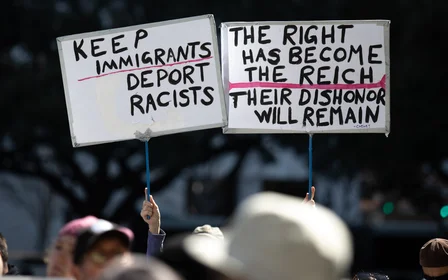 KEEP
IMMIGRANTS
DEPORT
RACISTS
THE RIGHT
HAS BECOME
THE REICH
THEIR DISHONOR
WILL REMAIN